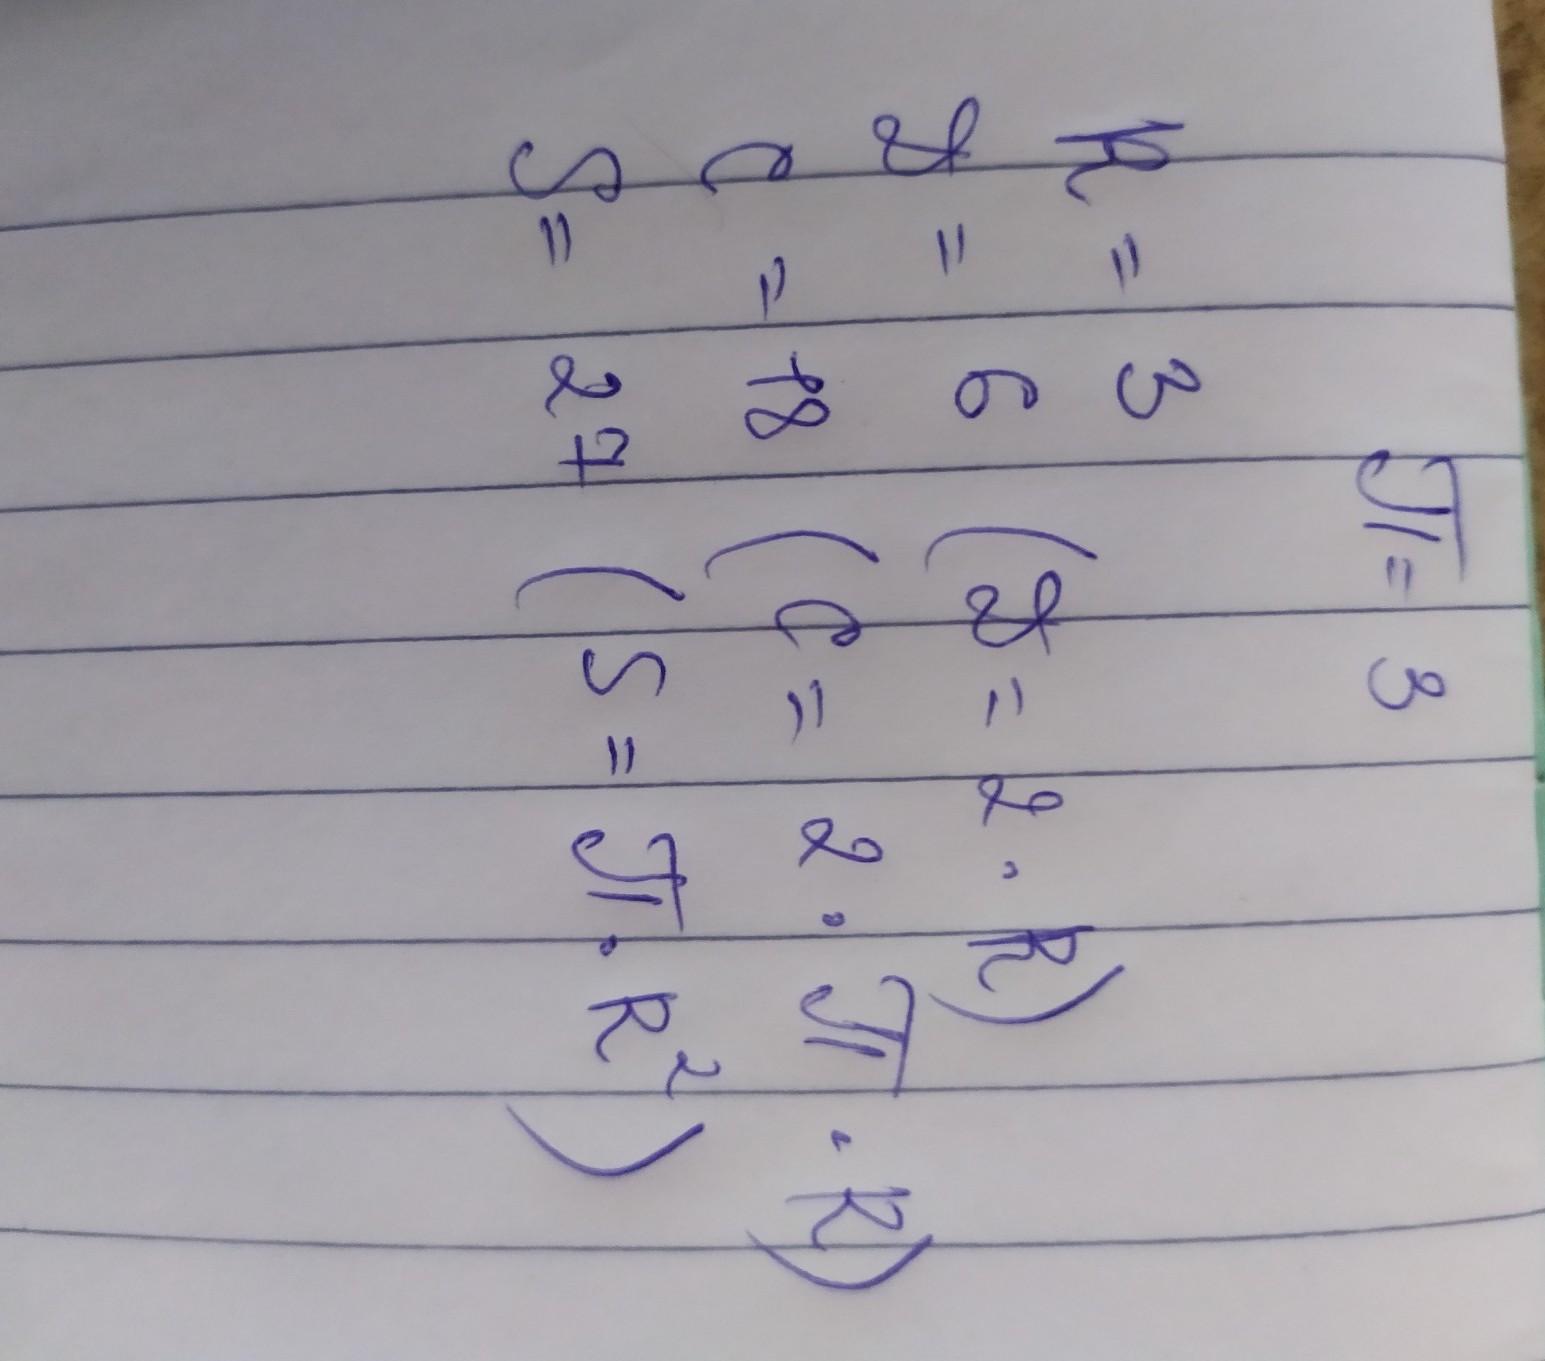 π = 3
R = 3
d = 6 (d = 2 · R)
C = 18 (C = 2 · π · R)
S = 27 (S = π · R²)